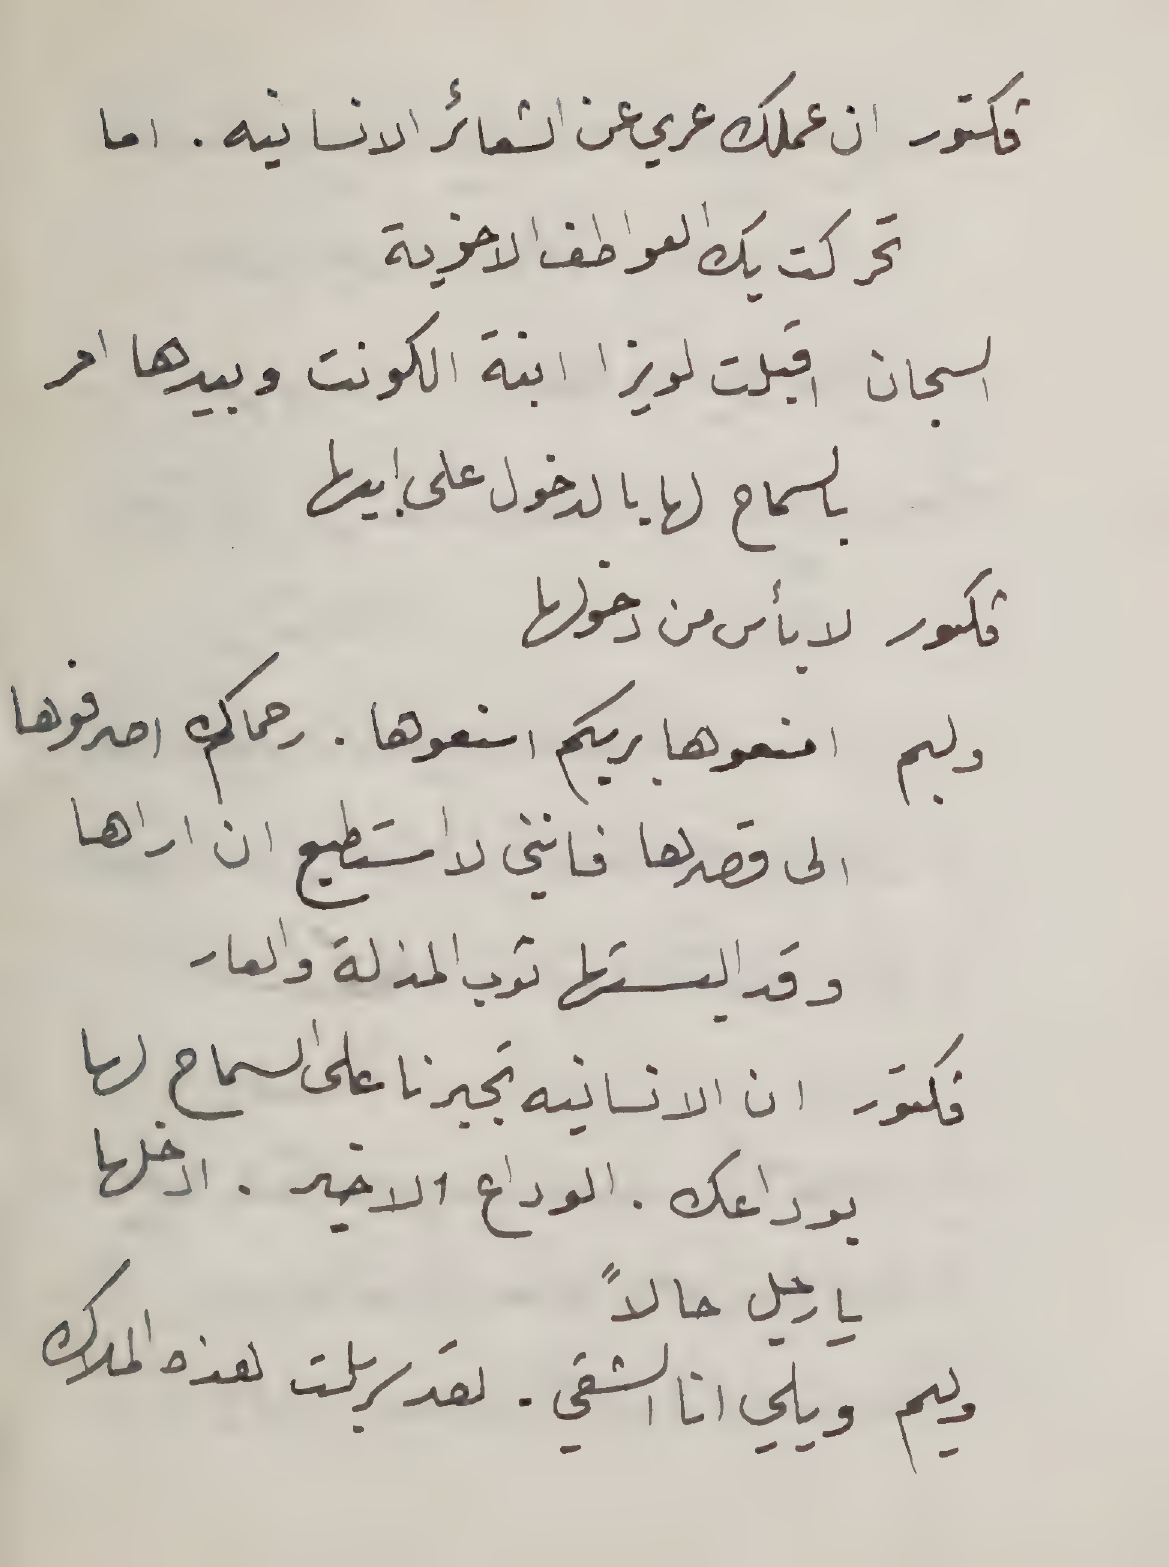 فكتور ان عملك عري عن الشعائر الانسانيه . اما
تحركت بك العواطف الاخوية
السجان اقبلت لويزا ابنة الكونت وبيدها امر
بالسماح لها بالدخول على ابيها
فكتور لا بأس من دخولها
وليم امنعوها بربكم امنعوها . رحماكم اصرفوها
الى قصرها فانني لا استطيع ان اراها
وقد البستها ثوب المذلة والعار
فكتور ان الانسانيه تجبرنا على السماح لها
بوداعك . الوداع الاخير . ادخلها
يا رجل حالاً
وليم ويلي انا الشقي . لقد سربلت هذه الملاك